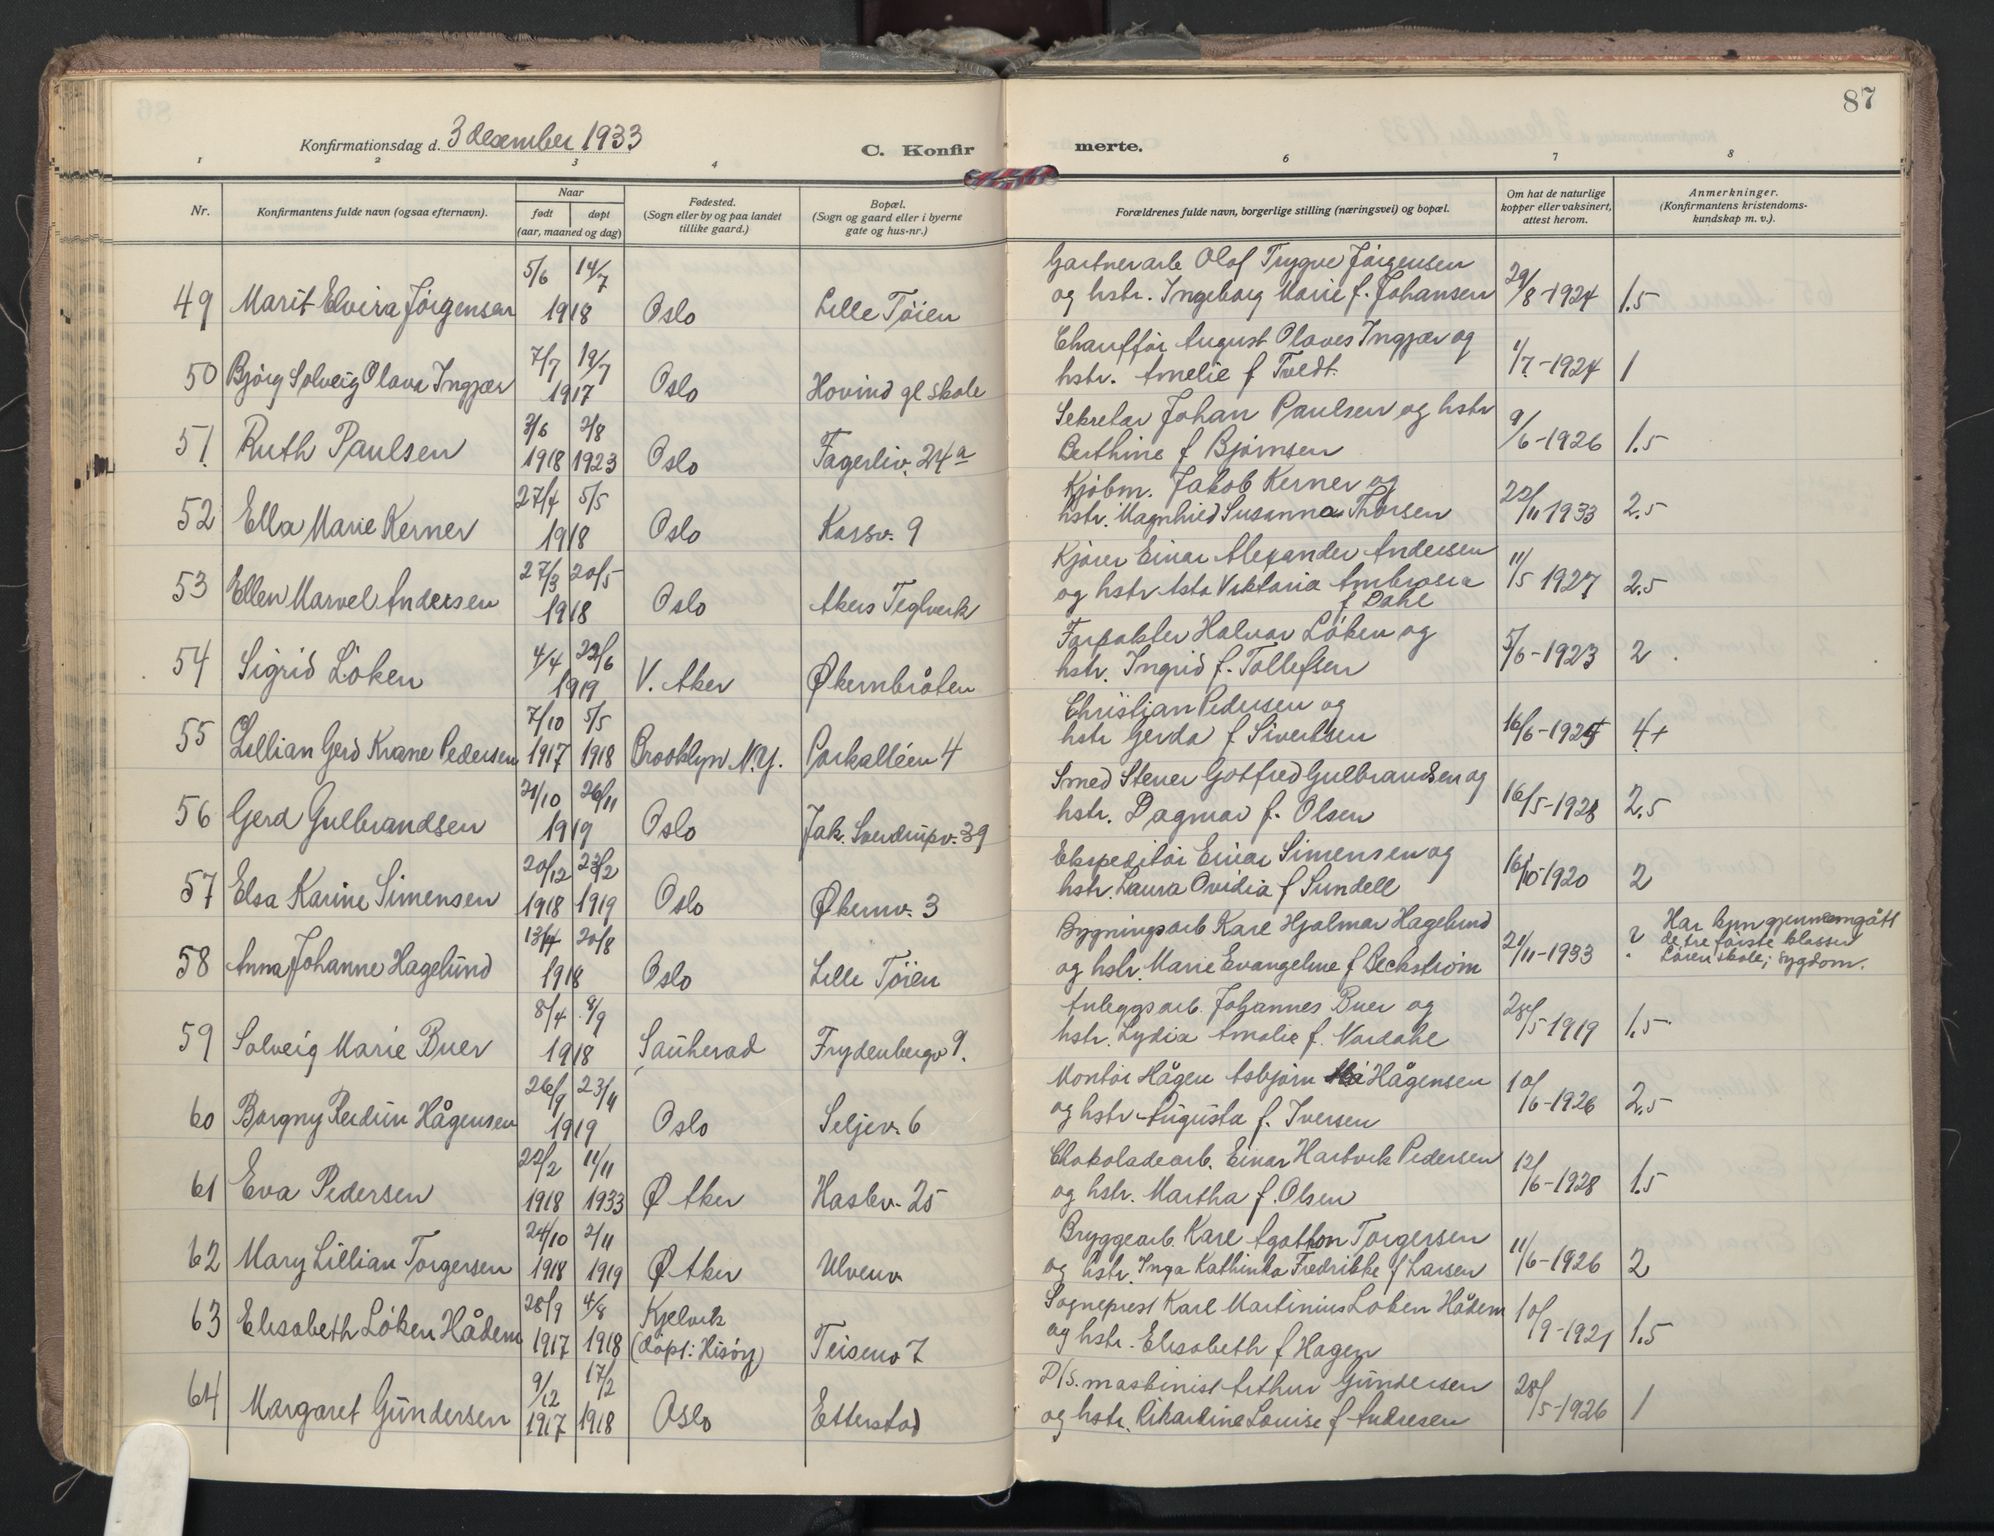 87
Konfirmationsdag d. 3 desember 1933 C. Konfir merte.
1 2 3 4 6 7 8
Nr. Konfirmantens fulde navn (ogsaa efternavn). Naar født døpt (aar, maaned og dag) Fødested. (Sogn eller by og paa landet tillike gaard.) Bopæl. (Sogn og gaard eller i byerne gate og hus-nr.) Forældrenes fulde navn, borgerlige stilling (næringsvei) og bopæl. Om hat de naturlige kopper eller vaksinert, attest herom. Anmerkninger. (Konfirmantens kristendoms- kundskap m. v.).
5/6 14/7 Gartnerarb Olaf Trygve Jörgensen
49 Marit Elvira Jörgensen 1918 Oslo Lille Töien og hstr. Ingeborg Marie f. Johansen 29/8-1924 1.5
7/7 19/7 Chaufför August Olaves Ingjær og
50 Bjørg Solveig Olava Ingjær 1917 Oslo Hovind gl skole hstr. Amelie f Tvedt. 1/7-1924 1
3/6 2/8 Sekretær Johan Paulsen og hstr
51 Ruth Paulsen 1918 1923 Oslo Fagerliv. 24a Berthine f Bjørnsen 9/6-1926 1.5
27/4 5/5 Kjöbm. Jakob Kerner og
52 Ella Marie Kerner 1918 Oslo Karsv. 9 hstr. Magnhild Susanna Thorsen 22/11 1933 2.5
27/3 20/5 Kjörer Einar Alexander Andersen
53 Ellen Marvel Andersen 1918 Oslo Akers Teglverk og hstr Asta Viktoria Ambrosia f Dahl 11/5 1927 2.5
4/4 22/6 Forpakter Halvar Löken og
54 Sigrid Löken 1919 V. Aker Økernbråten hstr. Ingrid f. Tollefsen 5/6-1923 2
7/10 5/5 Christian Pedersen og
55 Lillian Gerd Krane Pedersen 1917 1918 Brooklyn N.Y. Parkalléen 4 hstr Gerda f Sivertsen 16/6-1925 4+
21/10 26/11 Smed Stener Gotfred Gulbrandsen og
56 Gerd Gulbrandsen 1919 Oslo Jak. Sverdrupv. 39 hstr. Dagmar f. Olsen 16/5-1928 2.5
20/12 23/2 Ekspeditör Einar Simensen og
57 Elsa Karine Simensen 1918 1919 Oslo Økernv. 3 hstr. Laura Ovidia f Sundell 16/10-1920 2
13/4 20/8 Bygningsarb Karl Hjalmar Hagelund Har kun gjennemgått
58 Anna Johanne Hagelund 1918 Oslo Lille Töien og hstr. Marie Evangeline f Beckström 21/11-1933 ? de tre förste klasser Lören skole; sygdom.
8/4 8/9 Anleggsarb. Johannes Buer og
59 Solveig Marie Buer 1918 Sauherad Frydenbergv 9. hstr. Lydia Amalie f. Nordahl 28/5-1919 1.5
26/9 23/11 Montör Hågen Asbjörn Hågensen
60 Borgny Reidun Hågensen 1919 Oslo Seljev. 6 og hstr Augusta f. Iversen 10/6-1926 2.5
22/2 11/11 Chokoladearb. Einar Hartvik Pedersen
61 Eva Pedersen 1918 1933 Ø Aker Haslev. 25 og hstr. Martha f. Olsen 12/6-1928 1.5
24/10 2/11 Bryggearb. Karl Agathon Torgersen
62 Mary Lillian Torgersen 1918 1919 Ø Aker Ulvenv og hstr. Inga Kathinka Fredrikke f Larsen 11/6-1926 2
28/9 4/8 Kjelvik Sogneprest Karl Martinius Löken Hådem
63 Elisabeth Löken Hådem 1917 1918 (döpt: Hisöy) Teisenv 7 og hstr. Elisabeth f Hagen 10/9-1921 1.5
9/12 17/2 D/S. maskinist Arthur Gundersen
64 Margaret Gundersen 1917 1918 Oslo Etterstad og hstr. Rikardine Louise f Andresen 28/5-1926 1